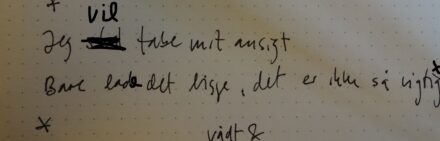 *
Jeg vil tabe mit ansigt
Bare lade det ligge, det er ikke så vigtig*
*
vådt &